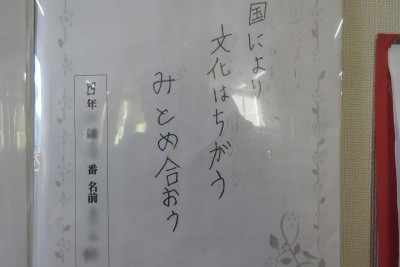 国により
文化はちがう
みとめ合おう
四年
番 名前